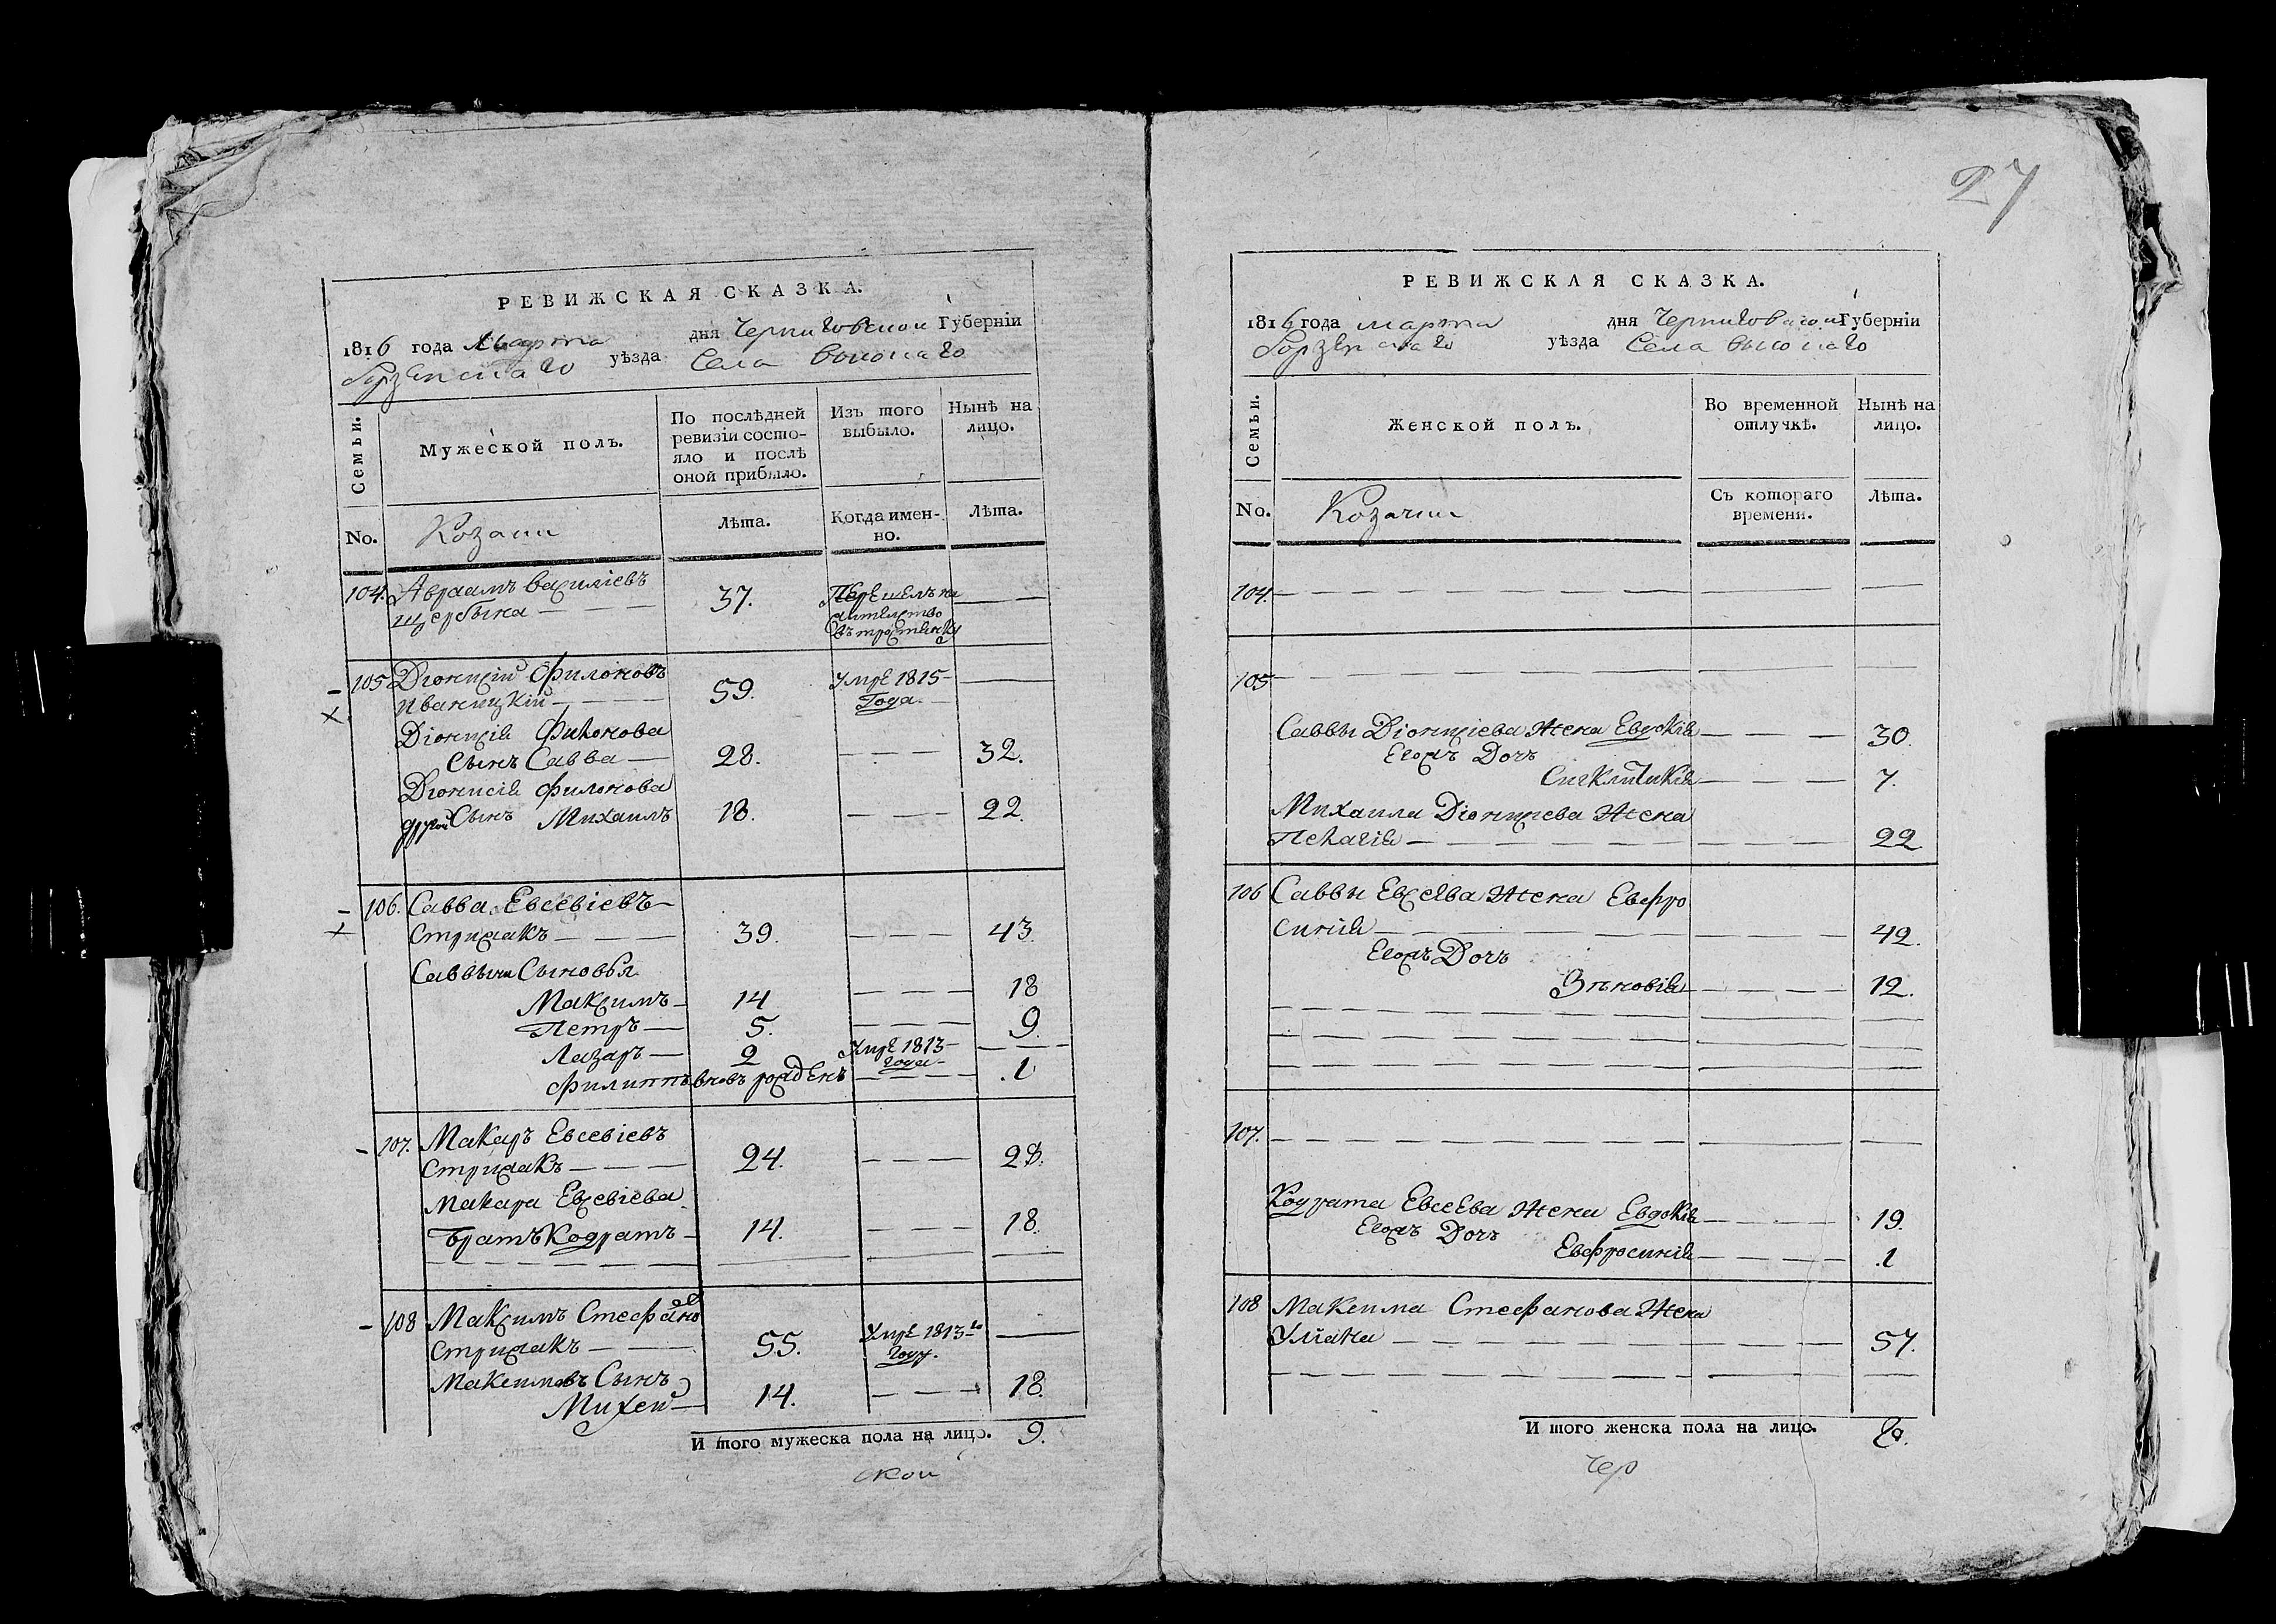 27
РЕВИЖСКАЯ СКАЗКА.
1816 года Марта дня Черниговской Губерніи
Борзенскаго уѣзда Села высокаго
Семьи.
Мужеской полъ.
По послѣдней ревизіи состо-
яло и послѣ
оной прибыло.
Изъ того
выбыло.
Нынѣ на
лицо.
No.
Козаки
Лѣта.
Когда имен-
но.
Лѣта.
104. Авраамъ василіевъ
щербина 37. Перешелъ на
жителство
въ
105 Діонисій Филоновъ 59. Умре 1815
Иваницкій Года.
Діонисія Филонова
Сынъ Савва 28. 32.
Діонисія Филонова
другой Сынъ Михаилъ 18. 22.
106. Савва Евсевіевъ
Стрижакъ 39. 43.
Саввыны Сыновья
Максимъ 14 18
Петръ 5. 9.
Лазарь 2 Умре 1813
года
Филиппъ вновь рожденъ .1
107. Макаръ Евсевіевъ
Стрижакъ 24. 28.
Макара Евсевіева
Братъ Кодратъ 14. 18.
108 Максимъ Стефановъ
Стрижакъ 55. Умре 1813-го
году.
Максимовъ Сынъ
Михей 14. 18.
И того мужеска пола на лицо. 9.
ской
РЕВИЖСКАЯ СКАЗКА.
1816 года марта дня Черниговской Губерніи
Борзенскаго уѣзда Села высокаго
Семьи.
Женской полъ.
Во временной
отлучкѣ.
Нынѣ на
лицо.
No.
Козачки
Съ котораго
времени.
Лѣта.
104.
105
Саввы Діонисіева Жена Евдокія 30.
Егожъ Дочь
Сигклитикія 7.
Михаила Діонисіева Жена
Пелагія 22
106 Саввы Евсеева Жена Евфро
синія 42.
Егожъ Дочь
Зѣновія 12.
107.
Кодрата Евсеева Жена Евдокія 19.
Егожъ Дочь
Евфросинія .1
108 Максима Стефанова Жена
Уліана 57.
И того женска пола на лицо. 8.
Чер